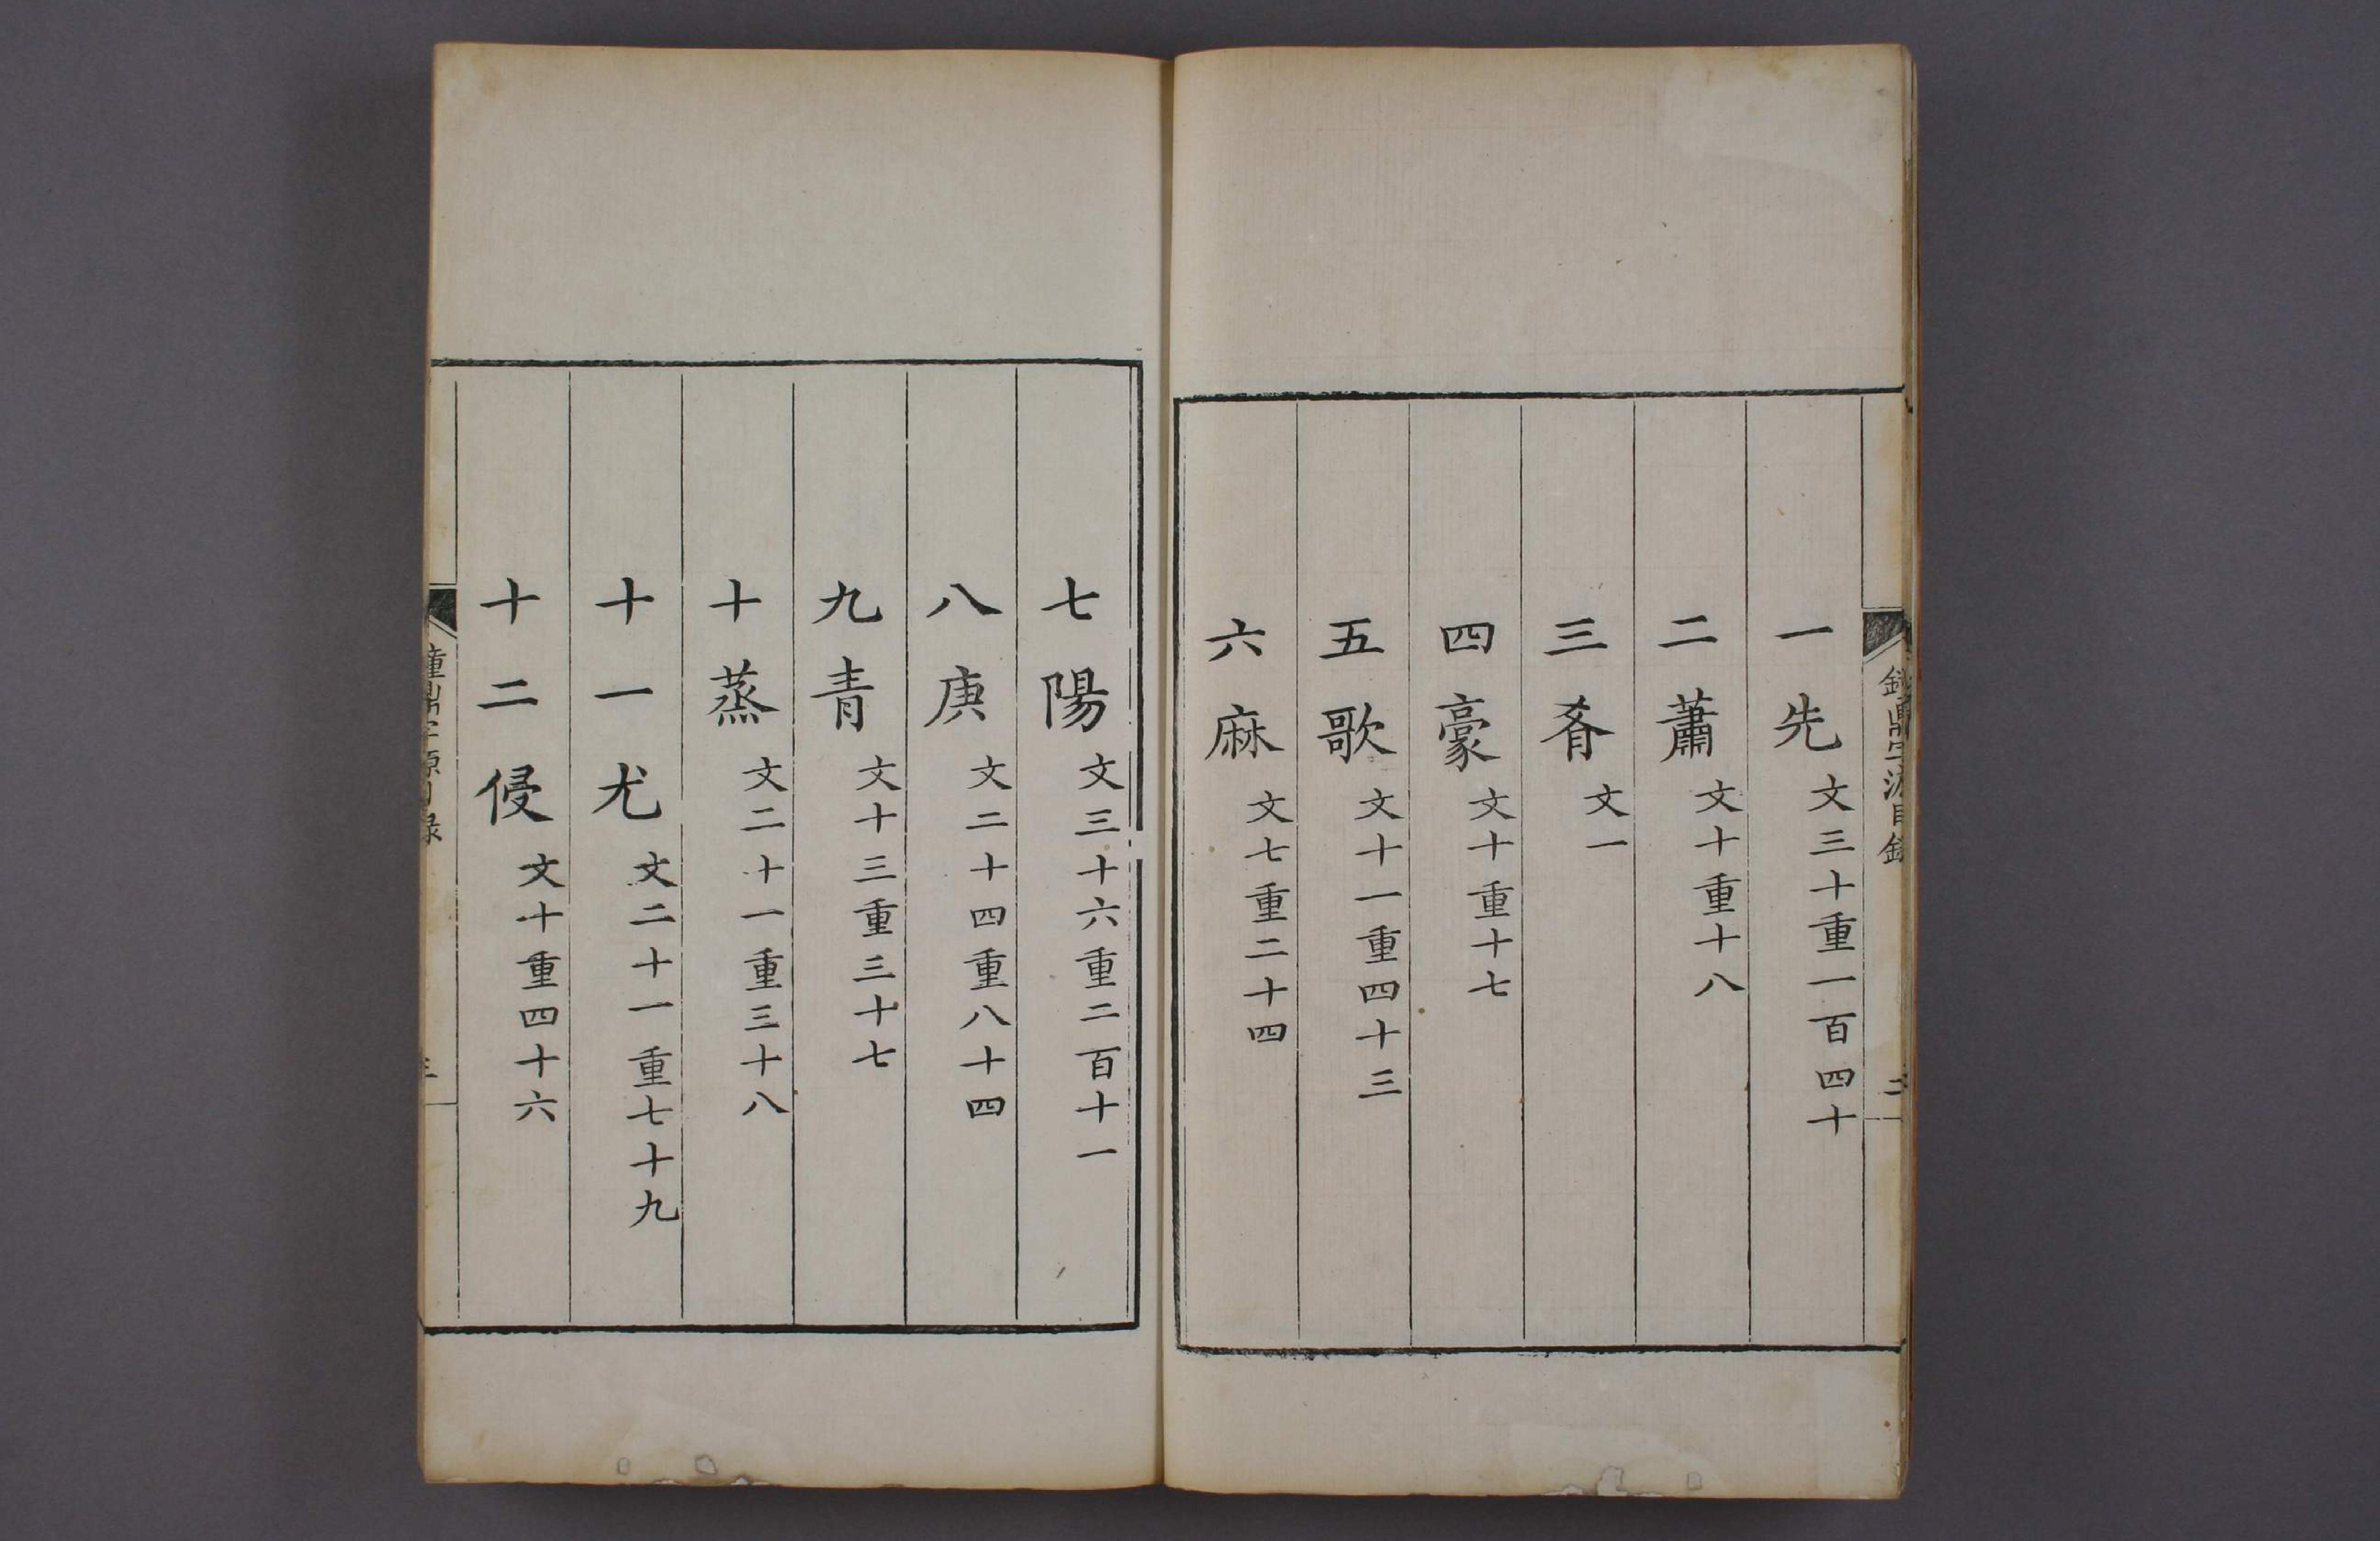 鐘鼎字源目錄
二
一先文三十重一百四十
二蕭文十重十八
三肴文一
四豪文十重十七
五歌文十一重四十三
六麻文七重二十四
七陽文三十六重二百十一
八庚文二十四重八十四
九青文十三重三十七
十蒸文二十一重三十八
十一尤文二十一重七十九
十二侵文十重四十六
鐘鼎字源目錄
三